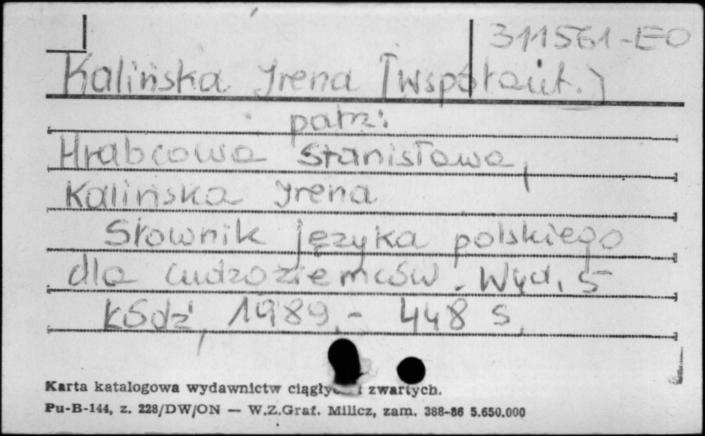 311561-EO
Kalińska Irena [współaut.]
patrz:
Hrabcowa Stanisława,
Kalińska Irena
Słownik języka polskiego
dla cudzoziemców. Wyd. 5
Łódź, 1989.- 448 s.
Karta katalogowa wydawnictw ciągłych i zwartych.
Pu-B-144, z. 228/DW/ON — W.Z.Graf. Milicz, zam. 388-86 5.650.000